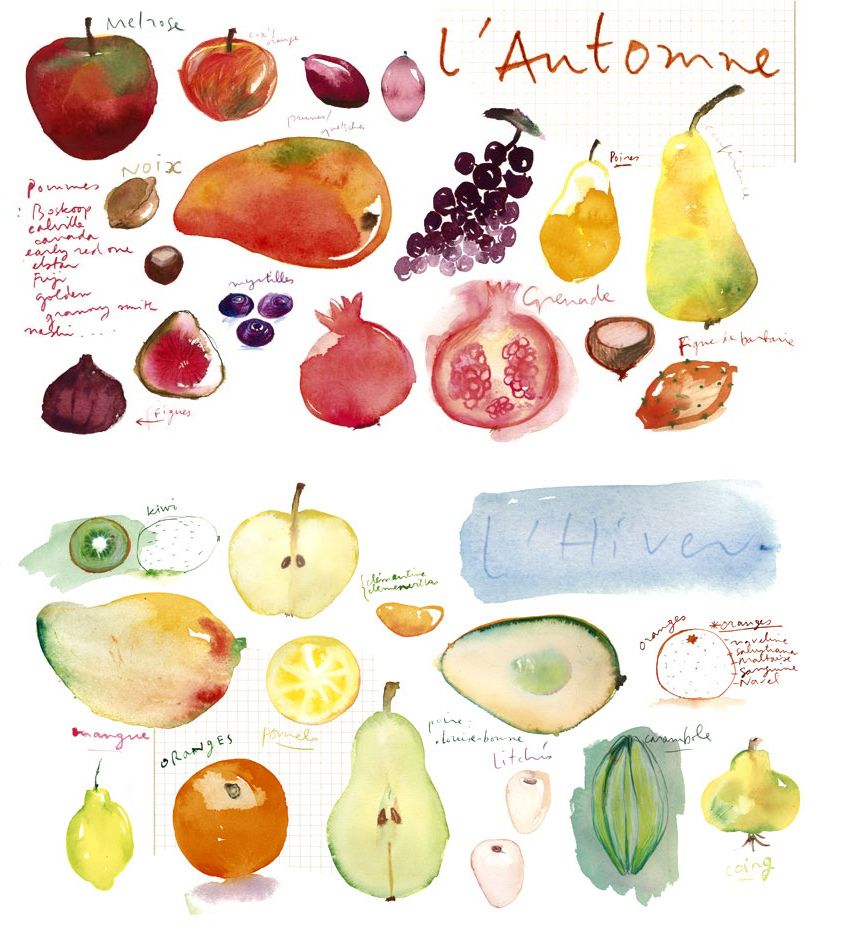 Melrose
cox's
orange
l'Automne
prunes/
quetsches
Poires
conférence
NOIX
Pommes
: Boskoop
calville
canada
early red one
elstar
Fuji
golden
granny smith
nashi ....
myrtilles
Grenade
Figue de barbarie
Figues
kiwi
L'Hiver
clémentine
clemenvillas
oranges
*oranges
naveline
salustiana
maltaise
sanguine
Navel
mangue
ORANGES
Pomelo
poire:
Louise-bonne
Litchis
carambole
coing